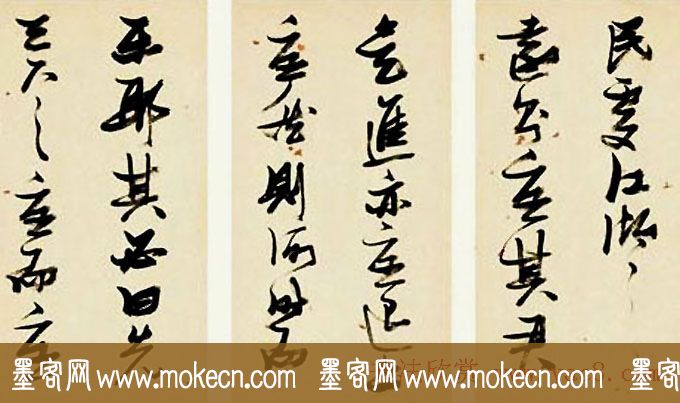 民處江湖之
遠則憂其君
是進亦憂退亦
憂然則何時而
樂耶其必曰先
天下之憂而憂
墨客网 www.mokecn.com 墨客网 www.mokecn.com 墨客网
法欣赏